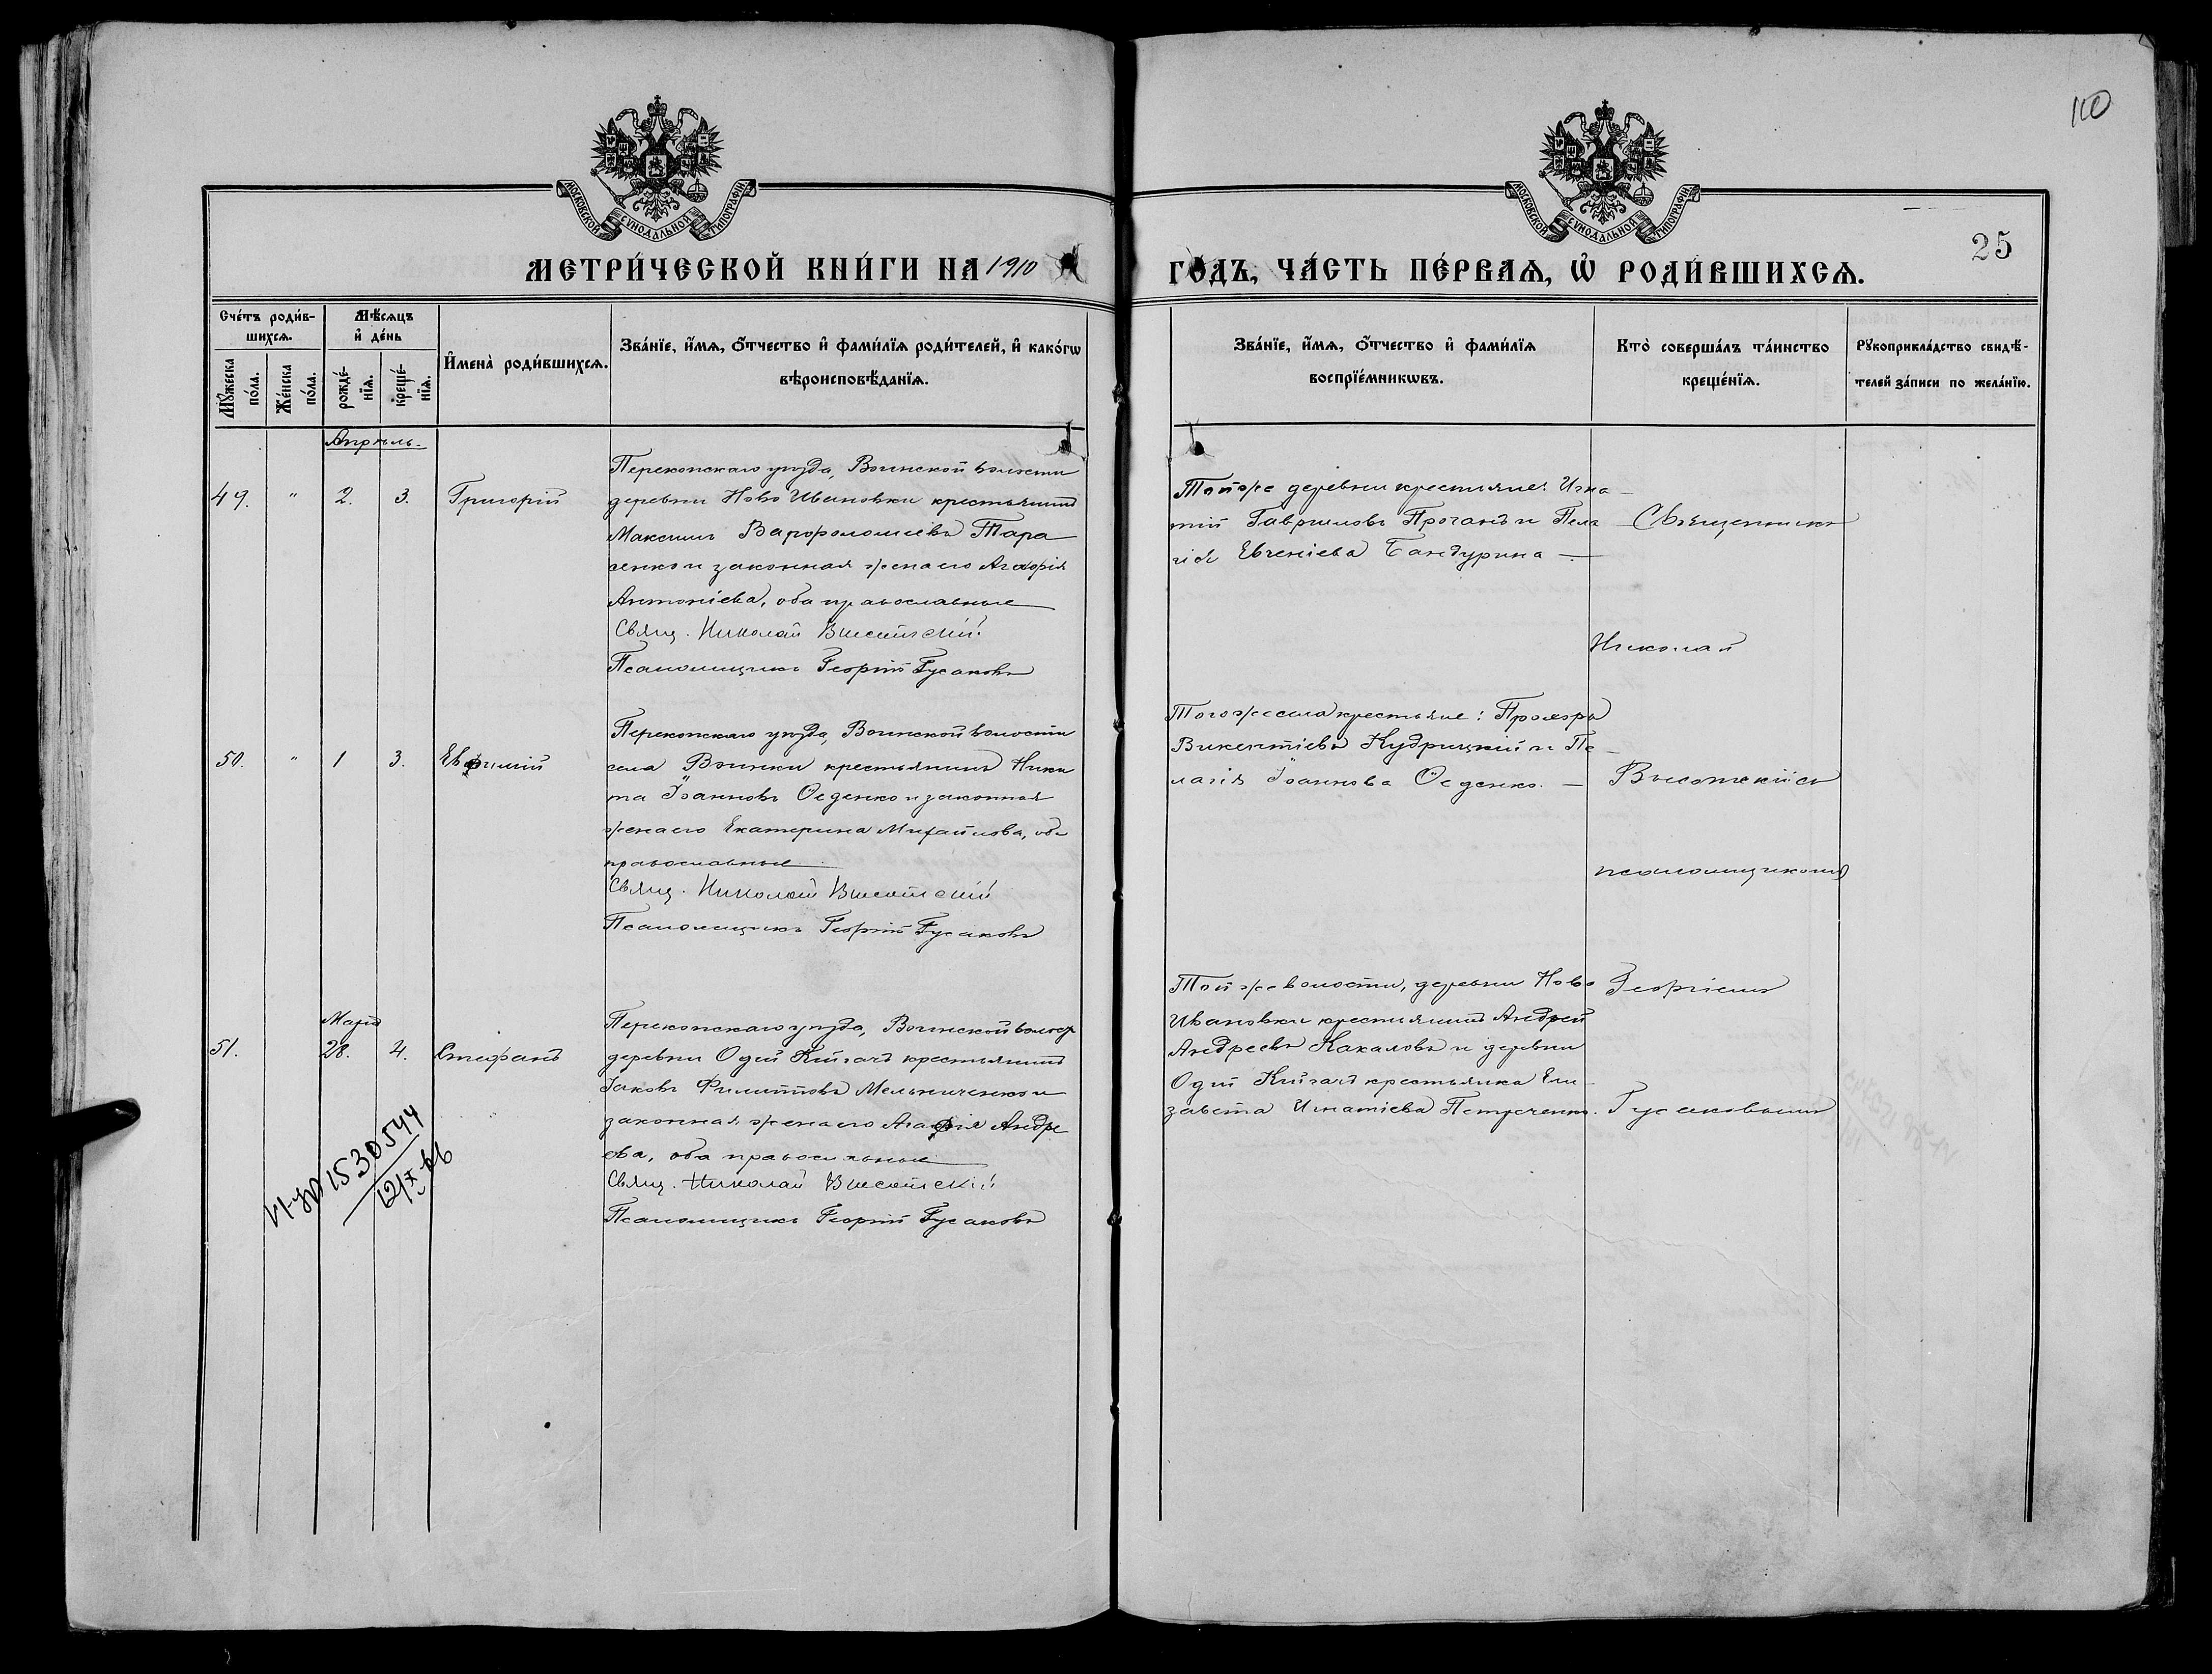 110
МОСКОВСКОЙ СУНОДАЛЬНОЙ ТИПОГРАФІИ
МОСКОВСКОЙ СУНОДАЛЬНОЙ ТИПОГРАФІИ
25
МЕТРИ́ЧЕСКОЙ КНИ́ГИ НА 1910
ГОДЪ, ЧА́СТЬ ПЕ́РВАѦ, Ѡ҆ РОДИ́ВШИХСѦ.
Сче́тъ роди́в-
шихсѧ.
Мѣ́сѧцъ
и҆ де́нь
Мꙋ́жеска
по́ла.
Же́нска
по́ла.
рожде́-
нїѧ.
креще́-
нїѧ.
И҆мена̀ роди́вшихсѧ.
Зва́нїе, и҆́мѧ, ѻ҆́тчество и҆ фами́лїѧ роди́телей, и҆ како́гѡ
вѣроисповѣ́данїѧ.
Зва́нїе, и҆́мѧ, ѻ҆́тчество и҆ фами́лїѧ
воспрїе́мникѡвъ.
Кто̀ соверша́лъ та́инство
креще́нїѧ.
Рꙋкоприкла́дство свидѣ́-
телей за́писи по жела́нїю.
Апрѣль
49. " 2. 3. Григорій
Перекопскаго уѣзда, Воинской волости
деревни Ново Ивановки крестьянинъ
Максимъ Варфоломѣевъ Тара
сенко и законная жена его Агафія
Антоніева, оба православные
Свящ. Николай Высотскій
Псаломщикъ Георгій Гусаковъ
Той же деревни крестьяне: Игна-
тій Гавриловъ Проганъ и Пела
гія Евгеніева Бандурина
Священникъ
Николай
50. " 1 3. Евфимій
Перекопскаго уѣзда, Воинской волости
села Воинки крестьянинъ Ники
та Іоанновъ Оеденко и законная
жена его Екатерина Михайлова, оба
православные
Свящ. Николай Высотскій
Псаломщикъ Георгій Гусаковъ
Того же села крестьяне: Прохоръ
Викентіевъ Кудрицкій и Пе-
лагія Іоаннова Оеденко.
Высотскій съ
псаломщикомъ
Мартъ
51. 28. 4. Стефанъ
Перекопскаго уѣзда, Воинской волости
деревни Одій Кигачъ крестьянинъ
Іаковъ Филипповъ Мельниченко и
законная жена его Агафія Андре
ева, оба православные
Свящ. Николай Высотскій
Псаломщикъ Георгій Гусаковъ
Той же волости, деревни Ново
Ивановки крестьянинъ Андрей
Андреевъ Какаловъ и деревни
Одій Кигачъ крестьянка Ели-
завета Игнатіева Петренко.
Георгіемъ
Гусаковымъ
1530544
12/X 66